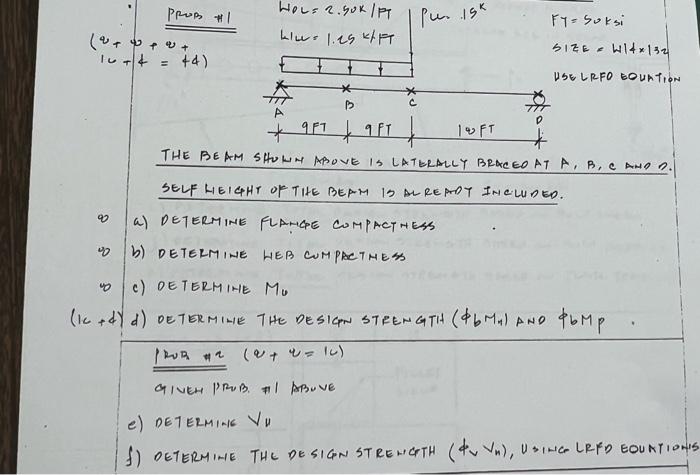 PROB #1
WDL = 2.50K/FT
PLL = 15K
FY = 50 Ksi
LLL = 1.25 K/FT
SIZE = W14x132
USE LRFD EQUATION
A
B
C
D
9FT
9FT
THE BEAM SHOWN ABOVE IS LATERALLY BRACED AT A, B, C AND D.
SELF WEIGHT OF THE BEAM IS ALREADY INCLUDED.
a) DETERMINE FLANGE COMPACTNESS
b) DETERMINE WEB COMPACTNESS
c) DETERMINE Mu
d) DETERMINE THE DESIGN STRENGTH (ϕbMn) AND ϕbMp.
PROB #2
GIVEN PROB. #1 ABOVE
e) DETERMINE Vu
f) DETERMINE THE DESIGN STRENGTH (ϕv Vn), USING LRFD EQUATIONS